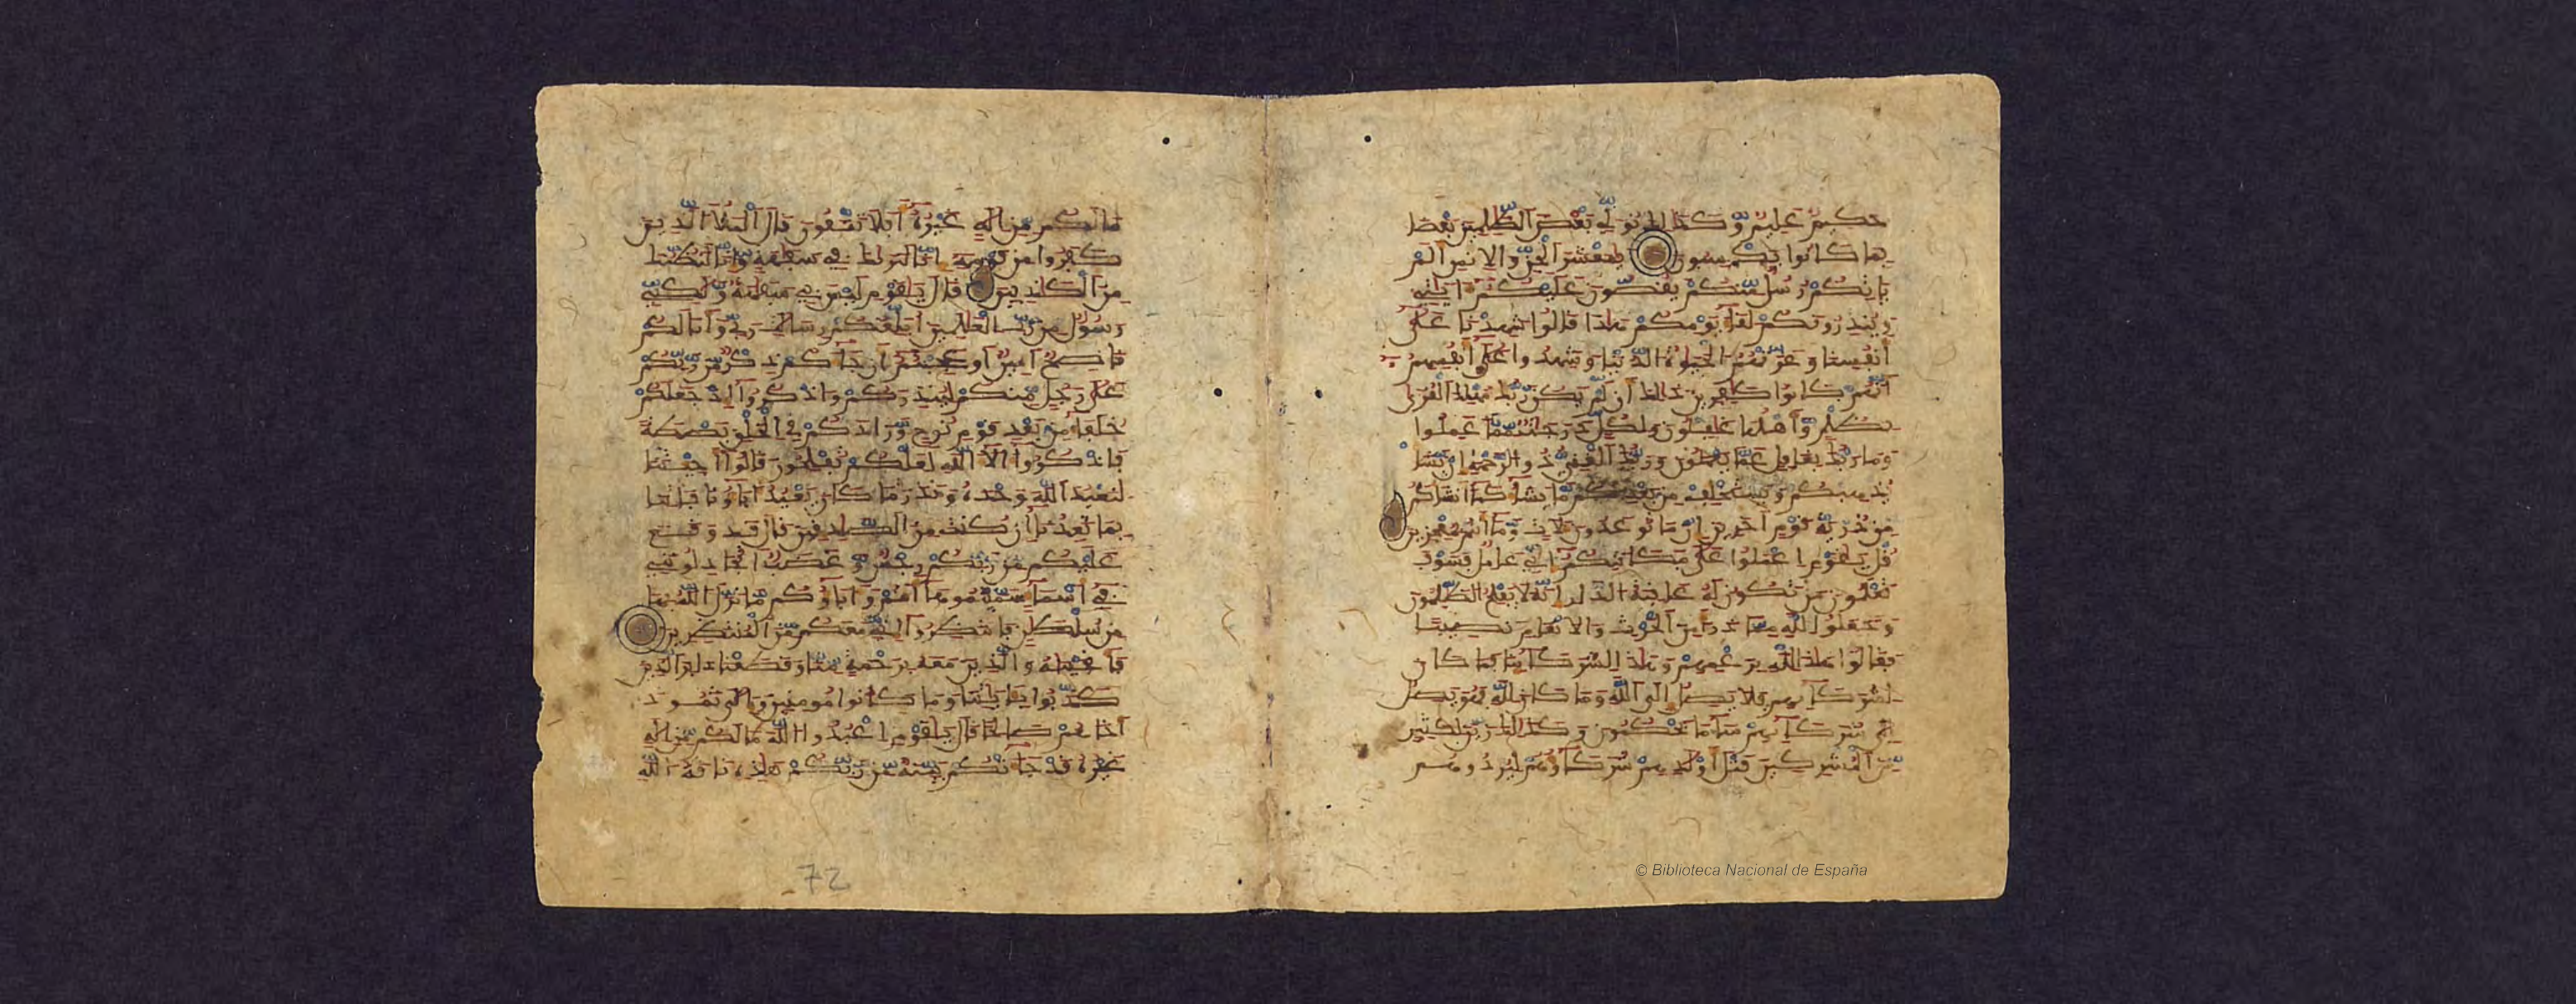 حكيم عليم وكذلك نولي بعض الظلمين بعضا
بما كانوا يكسبون يمعشر الجن والانس الم
ياتكم رسل منكم يقصون عليكم ءايتي
وينذرونكم لقاء يومكم هذا قالوا شهدنا على
أنفسنا وغرتهم الحيوة الدنيا وشهدوا على أنفسهم
أنهم كانوا كفرين ذلك أن لم يكن ربك مهلك القرى
بظلم وأهلها غفلون ولكل درجت مما عملوا
وما ربك بغفل عما يعملون وربك الغني ذو الرحمة إن يشا
يذهبكم ويستخلف من بعدكم ما يشاء كما أنشاكم
من ذرية قوم اخرين إن ما توعدون لات وما أنتم بمعجزين
قل يقوم اعملوا على مكانتكم إني عامل فسوف
تعلمون من تكون له عقبة الدار إنه لا يفلح الظلمون
وجعلوا لله مما ذرأ من الحرث والانعم نصيبا
فقالوا هذا لله بزعمهم وهذا لشركائنا فما كان
لشركائهم فلا يصل إلى الله وما كان لله فهو يصل
إلى شركائهم ساء ما يحكمون وكذلك زين لكثير
من المشركين قتل أولدهم شركاؤهم ليردوهم
ما لكم من إله غيره أفلا تتقون قال الملأ الذين
كفروا من قومه إنا لنريك في سفاهة وإنا لنظنك
من الكذبين قال يقوم ليس بي سفاهة ولكني
رسول من رب العلمين أبلغكم رسالات ربي وأنا لكم
ناصح أمين أوعجبتم أن جاءكم ذكر من ربكم
على رجل منكم لينذركم واذكروا إذ جعلكم
خلفاء من بعد قوم نوح وزادكم في الخلق بصطة
فاذكروا ءالاء الله لعلكم تفلحون قالوا أجئتنا
لنعبد الله وحده ونذر ما كان يعبد ءاباؤنا فأتنا
بما تعدنا إن كنت من الصدقين قال قد وقع
عليكم من ربكم رجس وغضب أتجدلونني
في أسماء سميتموها أنتم وءاباؤكم ما نزل الله بها
من سلطن فانتظروا إني معكم من المنتظرين
فأنجينه والذين معه برحمة منا وقطعنا دابر الذين
كذبوا بئايتنا وما كانوا مومنين وإلى ثمود
أخاهم صلحا قال يقوم اعبدوا الله ما لكم من إله
غيره قد جاءتكم بينة من ربكم هذه ناقة الله
72
© Biblioteca Nacional de España